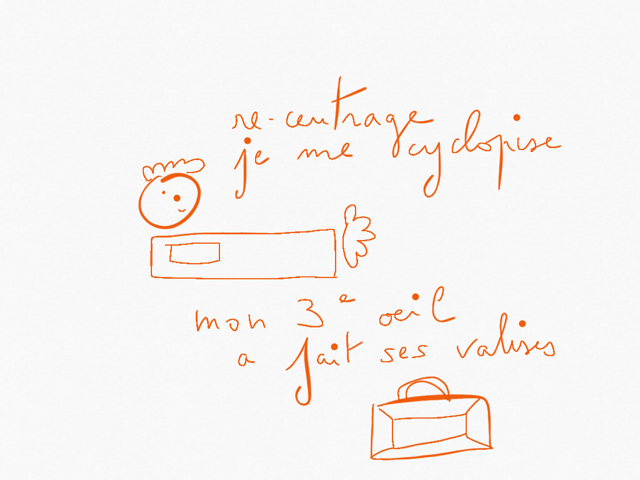 re-centrage
je me cyclopise
mon 3e oeil
a fait ses valises